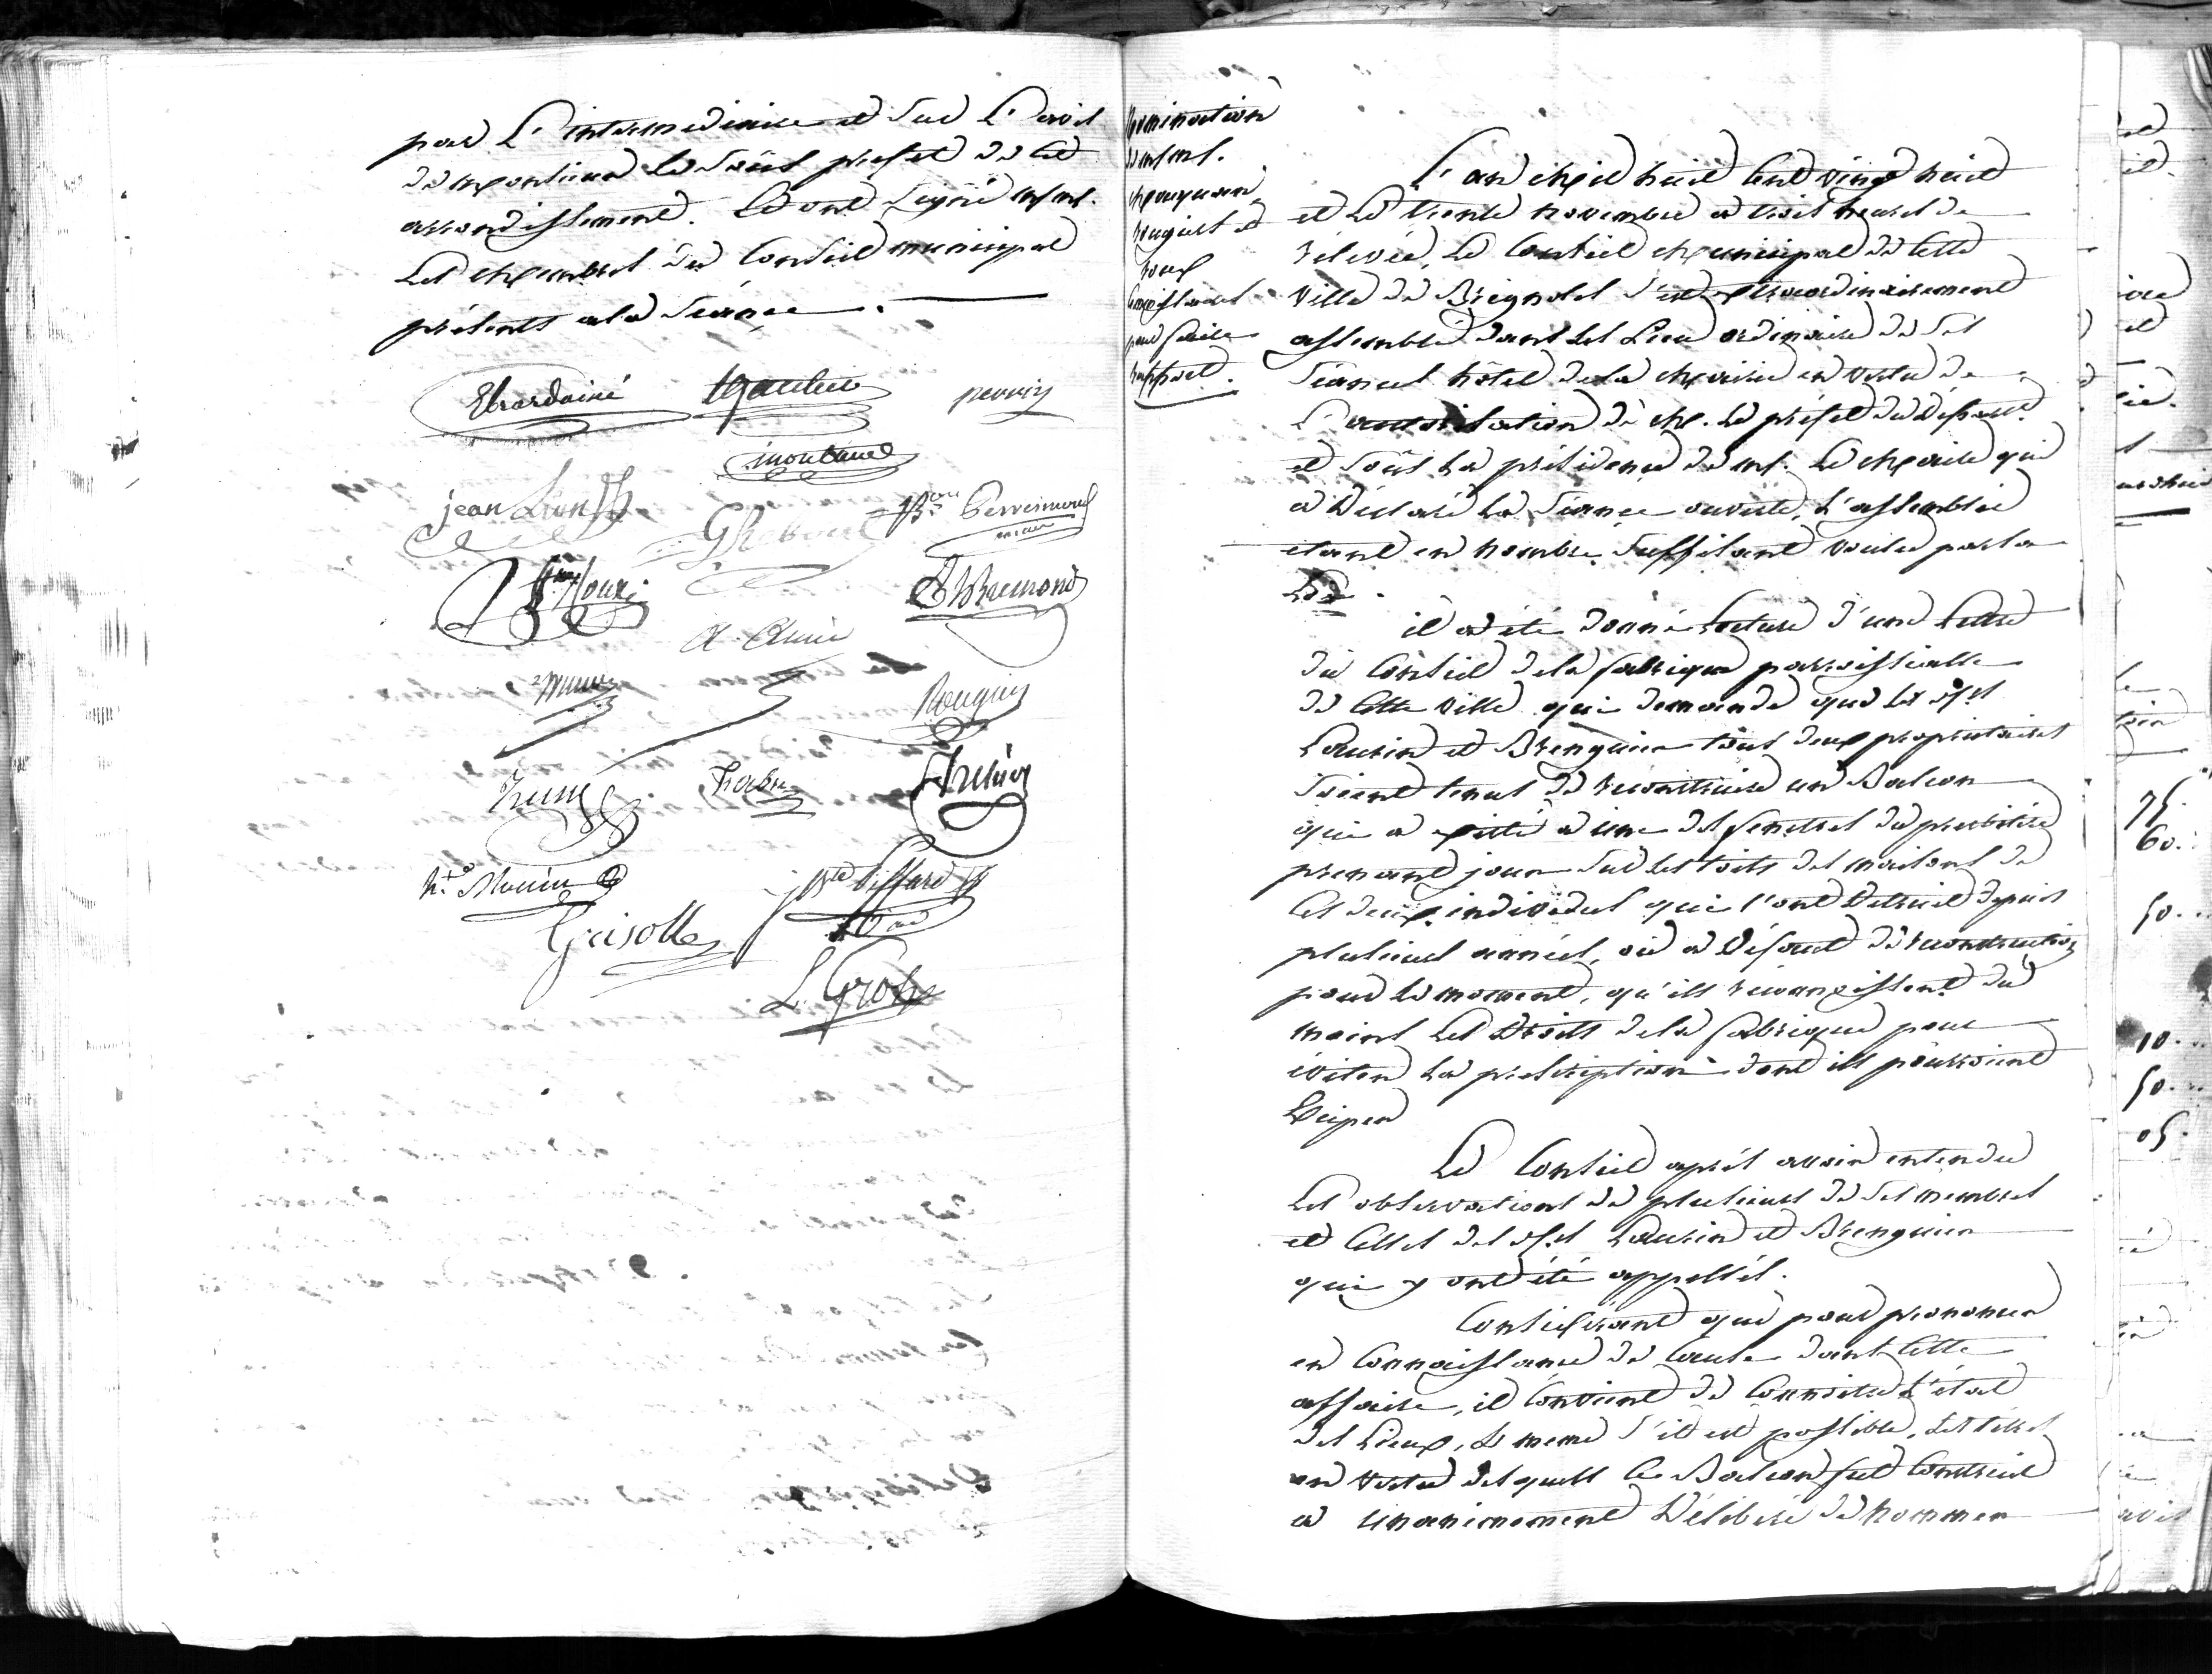 par L'intermediaire et sur L'avis
de monsieur le sous prefet de cet
arrondissement. Et ont signé msrs.
Les membres du Conseil municipal
présents a la séance.
Ebrard ainé Gautier perrin
montaud
jean Lion G Reboul Bon Perreimond maire
Roux B Raemond
A.
Rougier
Fabre
Mouin Jh Bte Piffard
Grisolle
L. Gros
Nomination
de msrs.
Maunguan,
rougiers et
roux
Comissaires
pour faire
rapport.
L'an mil huit cent vingt huit
et le trente novembre a trois heures de
relevée, Le Conseil municipal de cette
ville de Brignoles s'est extraordinairement
assemblé dans les Lieu ordinaire de ses
séances hôtel de la mairie en vertu de
L'autorisation de M. le préfet du Départt.
et sous la présidence de mr. Le maire qui
a Déclaré la séance ouverte, L'assemblée
etant en nombre suffisant voulu par la
Loi.
il a été donné Lecture d'une Lettre
du Conseil de la fabrique parroissialle
de cette ville qui demande que les srs
Laurin et Brenguier tous deux propriétaires
soient tenus de reconstruire un Balcon
qui a existé a une des fenetres du presbitère
prenant jour sur les toits des maisons de
ces deux individus qui l'ont Détruit depuis
plusieurs années, ou a Défaut de reconstruction
pour le moment, qu'ils reconnaissent du
moins Les Droits de la fabrique pour
éviter la prescription dont ils pourroient
Exiper
Le Conseil après avoir entendu
Les observations de plusieurs de ses membres
et Celles des srs Laurin et Brenguier
qui y ont été appellés.
Considérant que pour prononcer
en Connaissance de cause dans Cette
affaire, il Convient de Connoitre L'état
des Lieux, Et meme s'il est possible, Les titres
en vertu desquels Ce Balcon fut Construit
a unanimement Délibéré de nommer